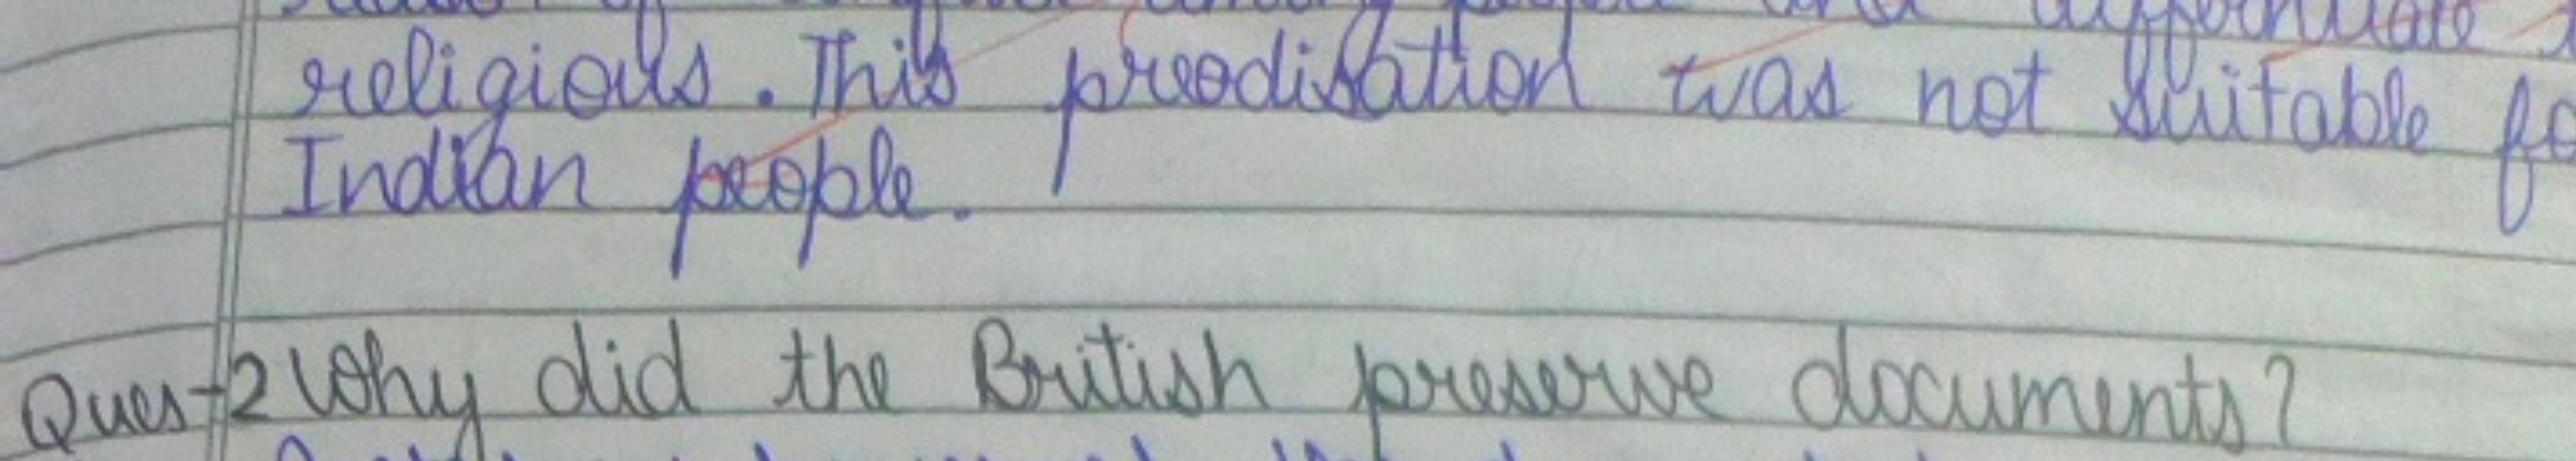 and differentiate
religious. This preodisation was not suitable fo
Indian people.
Ques-2 Why did the British preserve documents?